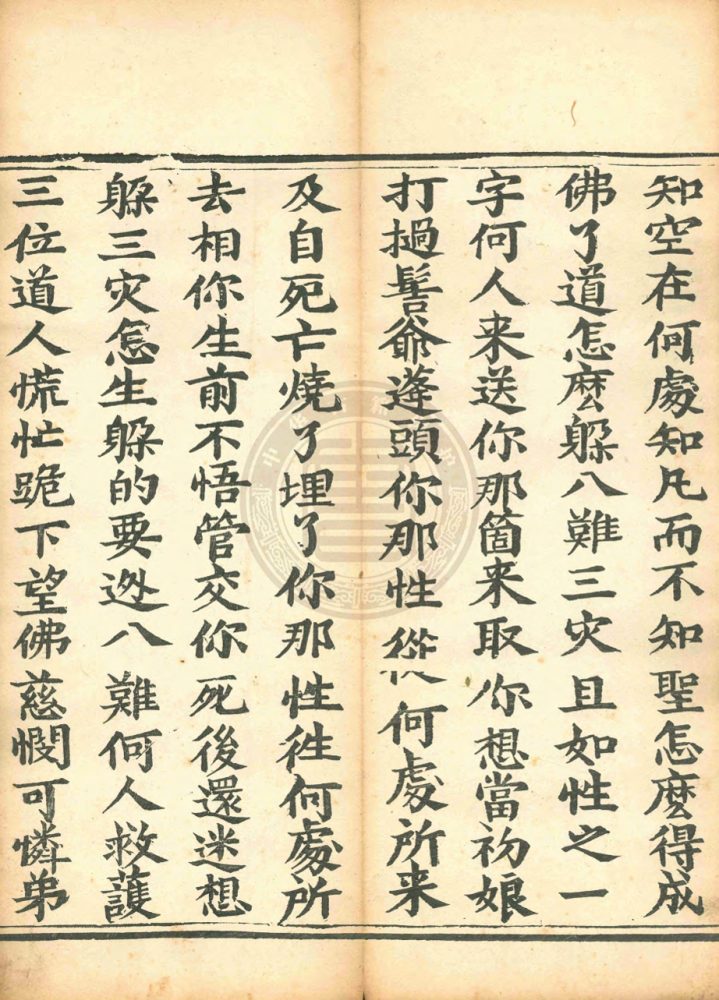 知空在何處知凡而不知聖怎麽得成
佛了道怎麽躱八難三灾且如性之一
字何人来送你那箇来取你想當初娘
打撾髻爺逢頭你那性從何處所来
及自死亡燒了埋了你那性徃何處所
去相你生前不悟管交你死後還迷想
躱三灾怎生躱的要迯八難何人救護
三位道人慌忙跪下望佛慈憫可憐弟